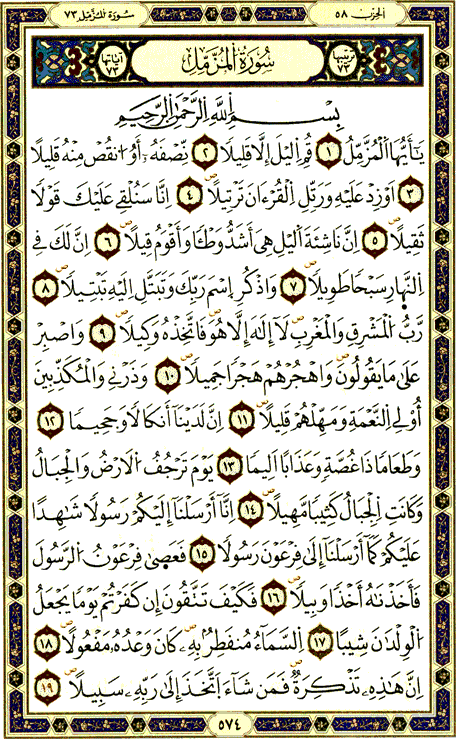 الحزب ٥٨
سورة المزمل ٧٣
ترتيبها ٧٣
سُورَةُ الْمُزَّمِّلِ
آياتها
بِسْمِ اللَّهِ الرَّحْمَٰنِ الرَّحِيمِ
يَٰٓأَيُّهَا اَ۬لْمُزَّمِّلُ ١ قُمِ اِ۬ليْلَ إِلَّا قَلِيلاٗ ٢ نِّصْفَهُۥٓ أَوُ اُ۟نقُصْ مِنْهُ قَلِيلاً
٣ اَوْ زِدْ عَلَيْهِ وَرَتِّلِ اِ۬لْقُرْءَانَ تَرْتِيلاً ٤ اِنَّا سَنُلْقِے عَلَيْكَ قَوْلاٗ
ثَقِيلاً ٥ اِنَّ نَاشِئَةَ اَ۬ليْلِ هِيَ أَشَدُّ وَطْـٔاٗ وَأَقْوَمُ قِيلاً ٦ اِنَّ لَكَ فِے
اِ۬لنَّهارِ سَبْحاٗ طَوِيلاٗ ٧ وَاذْكُرِ اِ۪سْمَ رَبِّكَ وَتَبَتَّلِ اِلَيْهِ تَبْتِيلاٗ ٨
رَّبُّ اُ۬لْمَشْرِقِ وَالْمَغْرِبِ لَآ إِلَٰهَ إِلَّا هُوَ فَاتَّخِذْهُ وَكِيلاٗ ٩ وَاصْبِرْ
عَلَىٰ مَا يَقُولُونَ وَاهْجُرْهُمْ هَجْراٗ جَمِيلاٗ ١٠ وَذَرْنِے وَالْمُكَذِّبِينَ
أُوْلِے اِ۬لنَّعْمَةِ وَمَهِّلْهُمْ قَلِيلاً ١١ اِنَّ لَدَيْنَآ أَنكَالاٗ وَجَحِيماٗ ١٢
وَطَعَاماٗ ذَا غُصَّةٍ وَعَذَاباً اَلِيماٗ ١٣ يَوْمَ تَرْجُفُ اُ۬لَارْضُ وَالْجِبَالُ
وَكَانَتِ اِ۬لْجِبَالُ كَثِيباٗ مَّهِيلاً ١٤ اِنَّآ أَرْسَلْنَآ إِلَيْكُمْ رَسُولاٗ شَٰهِداً
عَلَيْكُمْ كَمَآ أَرْسَلْنَآ إِلَىٰ فِرْعَوْنَ رَسُولاٗ ١٥ فَعَصىٰ فِرْعَوْنُ اُ۬لرَّسُولَ
فَأَخَذْنَٰهُ أَخْذاٗ وَبِيلاٗ ١٦ فَكَيْفَ تَتَّقُونَ إِن كَفَرْتُمْ يَوْماٗ يَجْعَلُ
اُ۬لْوِلْدَٰنَ شِيباً ١٧ اِ۬لسَّمَآءُ مُنفَطِرُۢ بِهِۦ كَانَ وَعْدُهُۥ مَفْعُولاً ١٨
اِنَّ هَٰذِهِۦ تَذْكِرَةٞ فَمَن شَآءَ اَ۪تَّخَذَ إِلَىٰ رَبِّهِۦ سَبِيلاً ١٩
٥٧٤